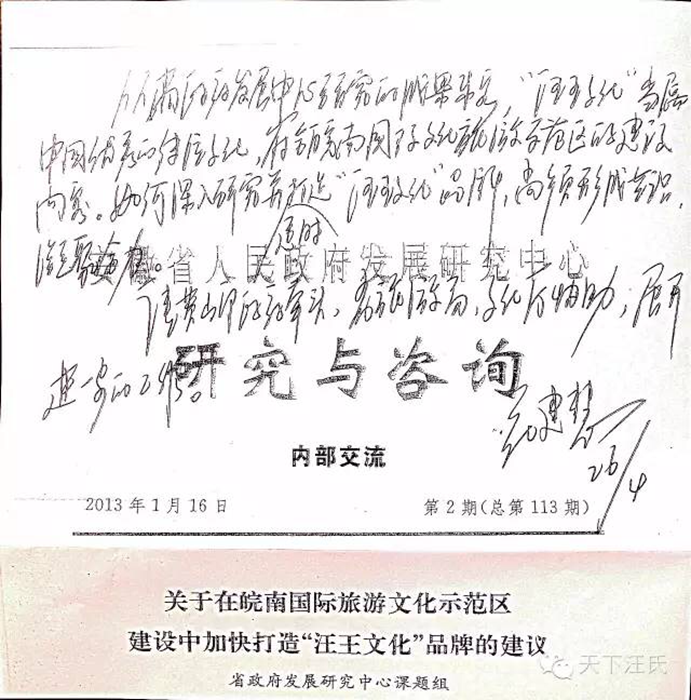 从省政府发展中心研究的成果来看，“汪王文化”当属
中国优秀的传统文化，皖南国际文化旅游示范区的建设
内容。如何深入研究并打造“汪王文化”品牌，尚须形成共识，
适时
安徽省人民政府发展研究中心
请黄山市政府牵头，省旅游局、文化厅辅助，展开
进一步的工作。
研究与咨询
花建慧
26/4
内部交流
2013年1月16日
第2期(总第113期)
关于在皖南国际旅游文化示范区
建设中加快打造“汪王文化”品牌的建议
省政府发展研究中心课题组
天下汪氏